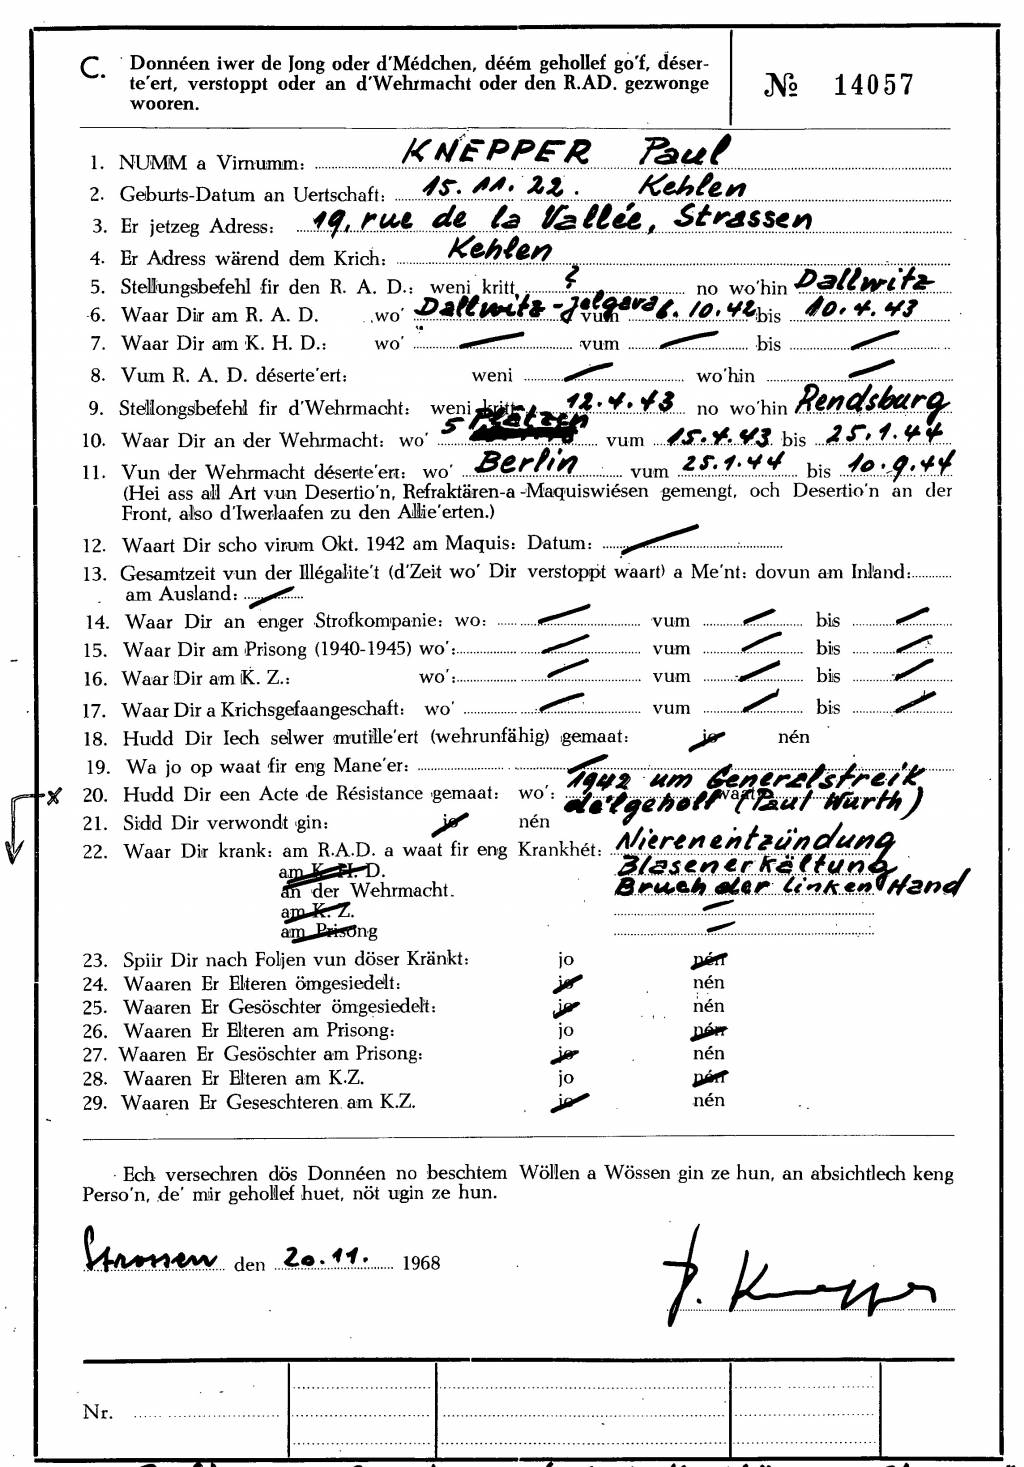 C. Donnéen iwer de Jong oder d'Médchen, déém gehollef go'f, déser-
te'ert, verstoppt oder an d'Wehrmacht oder den R.AD. gezwonge
wooren.
№ 14057
1. NUMM a Virnumm: KNEPPER Paul
2. Geburts-Datum an Uertschaft: 15. 11. 22. Kehlen
3. Er jetzeg Adress: 19, rue de la Vallée, Strassen
4. Er Adress wärend dem Krich: Kehlen
5. Stellungsbefehl fir den R. A. D.: weni kritt ? no wo'hin Dallwitz
6. Waar Dir am R. A. D. wo' Dallwitz - Jelgava vum 6. 10. 42 bis 10. 4. 43
7. Waar Dir am K. H. D.: wo' vum bis
8. Vum R. A. D. déserte'ert: weni wo'hin
9. Stellongsbefehl fir d'Wehrmacht: weni kritt 12. 4. 43 no wo'hin Rendsburg
10. Waar Dir an der Wehrmacht: wo' 5 Plätzen vum 15. 4. 43 bis 25. 1. 44
11. Vun der Wehrmacht déserte'ert: wo' Berlin vum 25. 1. 44 bis 10. 9. 44
(Hei ass all Art vun Desertio'n, Refraktären-a-Maquiswiésen gemengt, och Desertio'n an der
Front, also d'Iwerlaafen zu den Allie'erten.)
12. Waart Dir scho virum Okt. 1942 am Maquis: Datum:
13. Gesamtzeit vun der Illégalite't (d'Zeit wo' Dir verstoppt waart) a Me'nt: dovun am Inland:
am Ausland:
14. Waar Dir an enger Strofkompanie: wo: vum bis
15. Waar Dir am Prisong (1940-1945) wo': vum bis
16. Waar Dir am K. Z.: wo': vum bis
17. Waar Dir a Krichsgefaangeschaft: wo' vum bis
18. Hudd Dir Iech selwer mutille'ert (wehrunfähig) gemaat: jo nén
19. Wa jo op waat fir eng Mane'er:
x 20. Hudd Dir een Acte de Résistance gemaat: wo': 1942 um Generalstreik waat
de'lgeholl (Paul Wurth)
21. Sidd Dir verwondt gin: jo nén
22. Waar Dir krank: am R.A.D. a waat fir eng Krankhét: Nierenentzündung
am K. H. D. Blasenerkältung
an der Wehrmacht. Bruch der linken Hand
am K. Z.
am Prisong
23. Spiir Dir nach Foljen vun döser Kränkt: jo nén
24. Waaren Er Elteren ömgesiedelt: jo nén
25. Waaren Er Gesöschter ömgesiedelt: jo nén
26. Waaren Er Elteren am Prisong: jo nén
27. Waaren Er Gesöschter am Prisong: jo nén
28. Waaren Er Elteren am K.Z. jo nén
29. Waaren Er Geseschteren am K.Z. jo nén
Ech versechren dös Donnéen no beschtem Wöllen a Wössen gin ze hun, an absichtlech keng
Perso'n, de' mir gehollef huet, nöt ugin ze hun.
Strassen den 20. 11. 1968
P. Knepper
Nr.